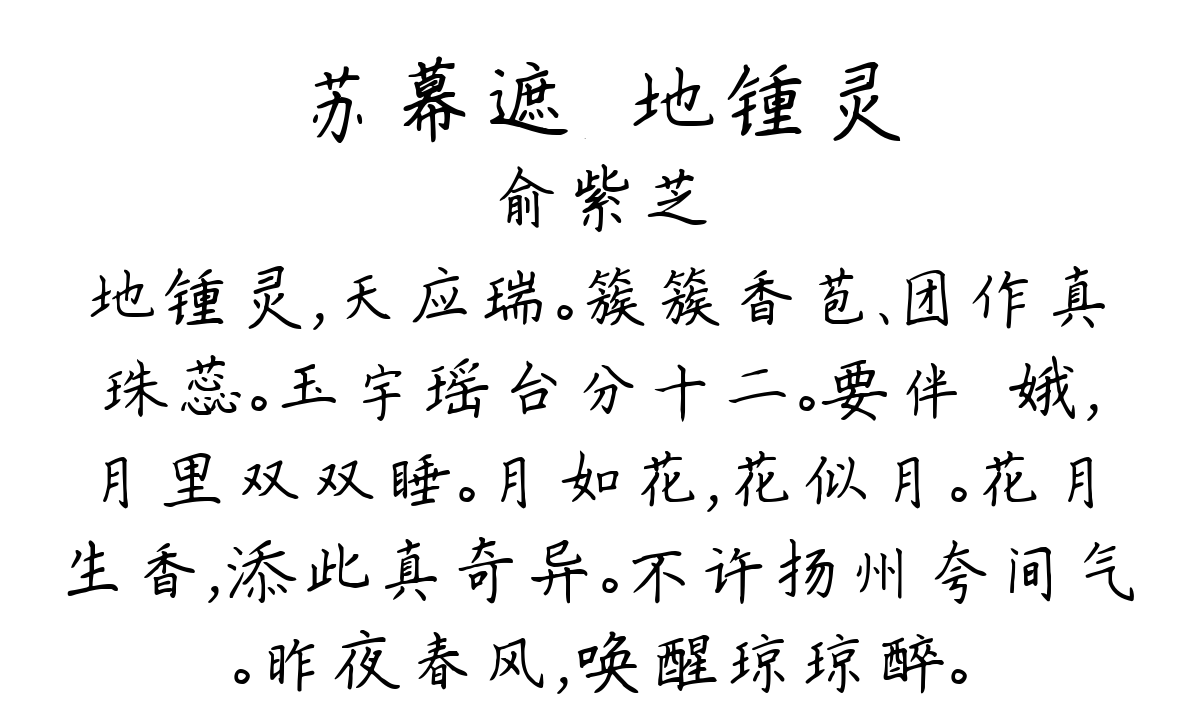 苏幕遮 地锺灵
俞紫芝
地锺灵,天应瑞。簇簇香苞、团作真
珠蕊。玉宇瑶台分十二。要伴 娥,
月里双双睡。月如花,花似月。花月
生香,添此真奇异。不许扬州夸间气
。昨夜春风,唤醒琼琼醉。